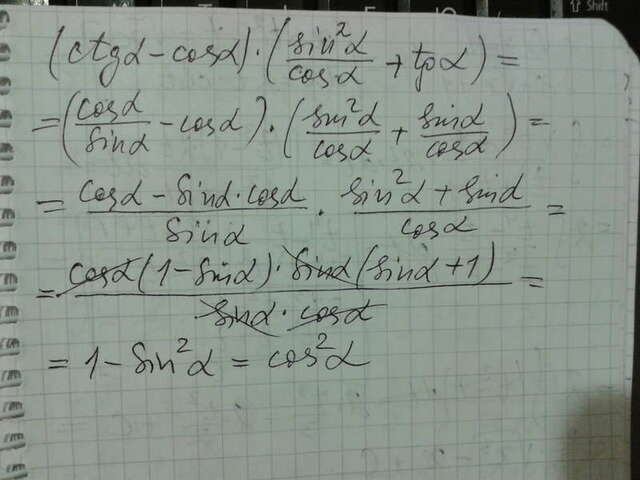 ⇧ Shift
(ctgα - cosα) · (sin²α/cosα + tgα) =
= (cosα/sinα - cosα) · (sin²α/cosα + sinα/cosα) =
= (cosα - sinα · cosα)/sinα · (sin²α + sinα)/cosα =
= cosα(1 - sinα) · sinα(sinα + 1)/(sinα · cosα) =
= 1 - sin²α = cos²α